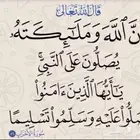 قال الله تعالى
نَّ ٱللَّهَ وَمَلَٰٓئِكَتَهُۥ
يُصَلُّونَ عَلَى ٱلنَّبِيِّ
يَٰٓأَيُّهَا ٱلَّذِينَ ءَامَنُوا۟
لُّوا۟ عَلَيْهِ وَسَلِّمُوا۟ تَسْلِيمًا